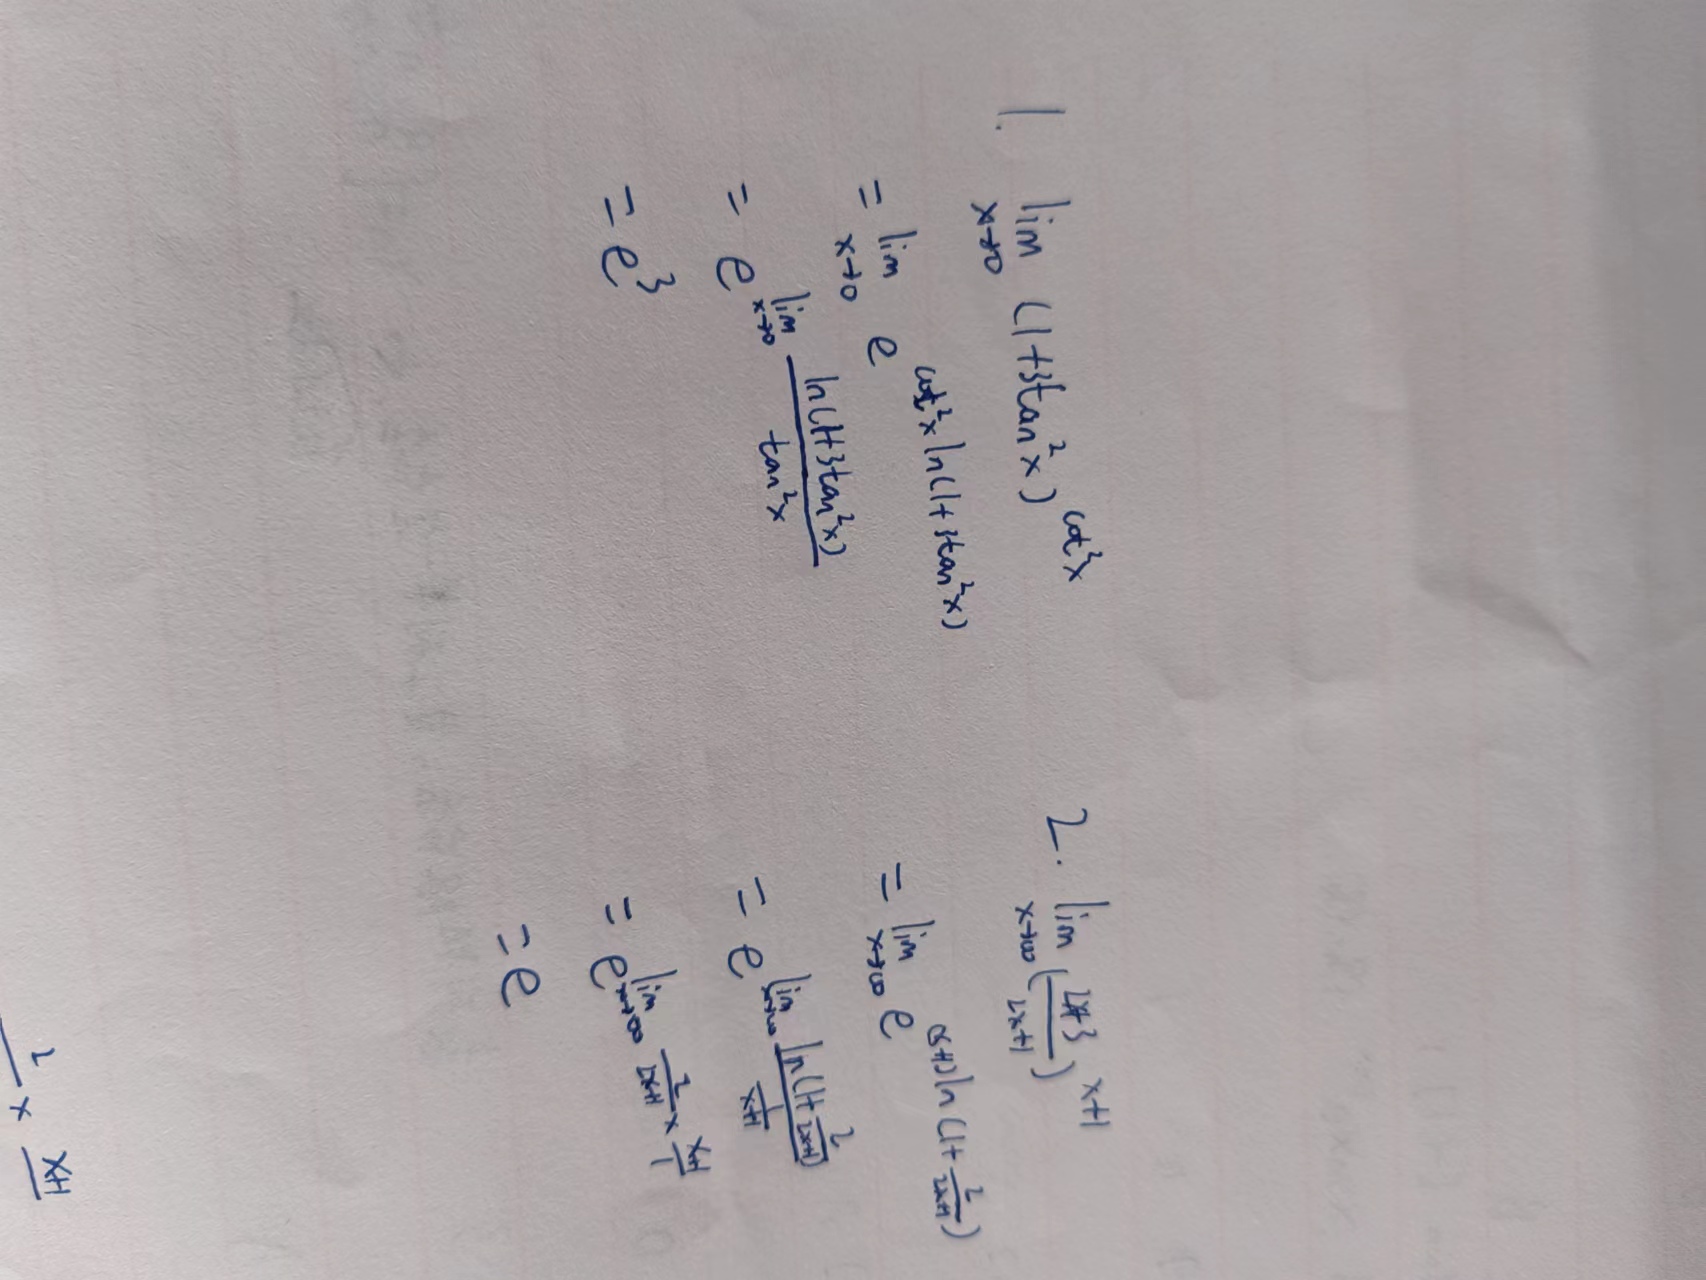 1. lim x→0 (1+3tan²x)^cot²x
= lim x→0 e^cot²x ln(1+3tan²x)
= e^lim x→0 ln(1+3tan²x)/tan²x
= e³
2. lim x→∞ (2x+3/2x+1)^x+1
= lim x→∞ e^(x+1)ln(1+2/2x+1)
= e^lim x→∞ ln(1+2/2x+1)/1/x+1
= e^lim x→∞ 2/2x+1 × x+1/1
= e
2 × x+1